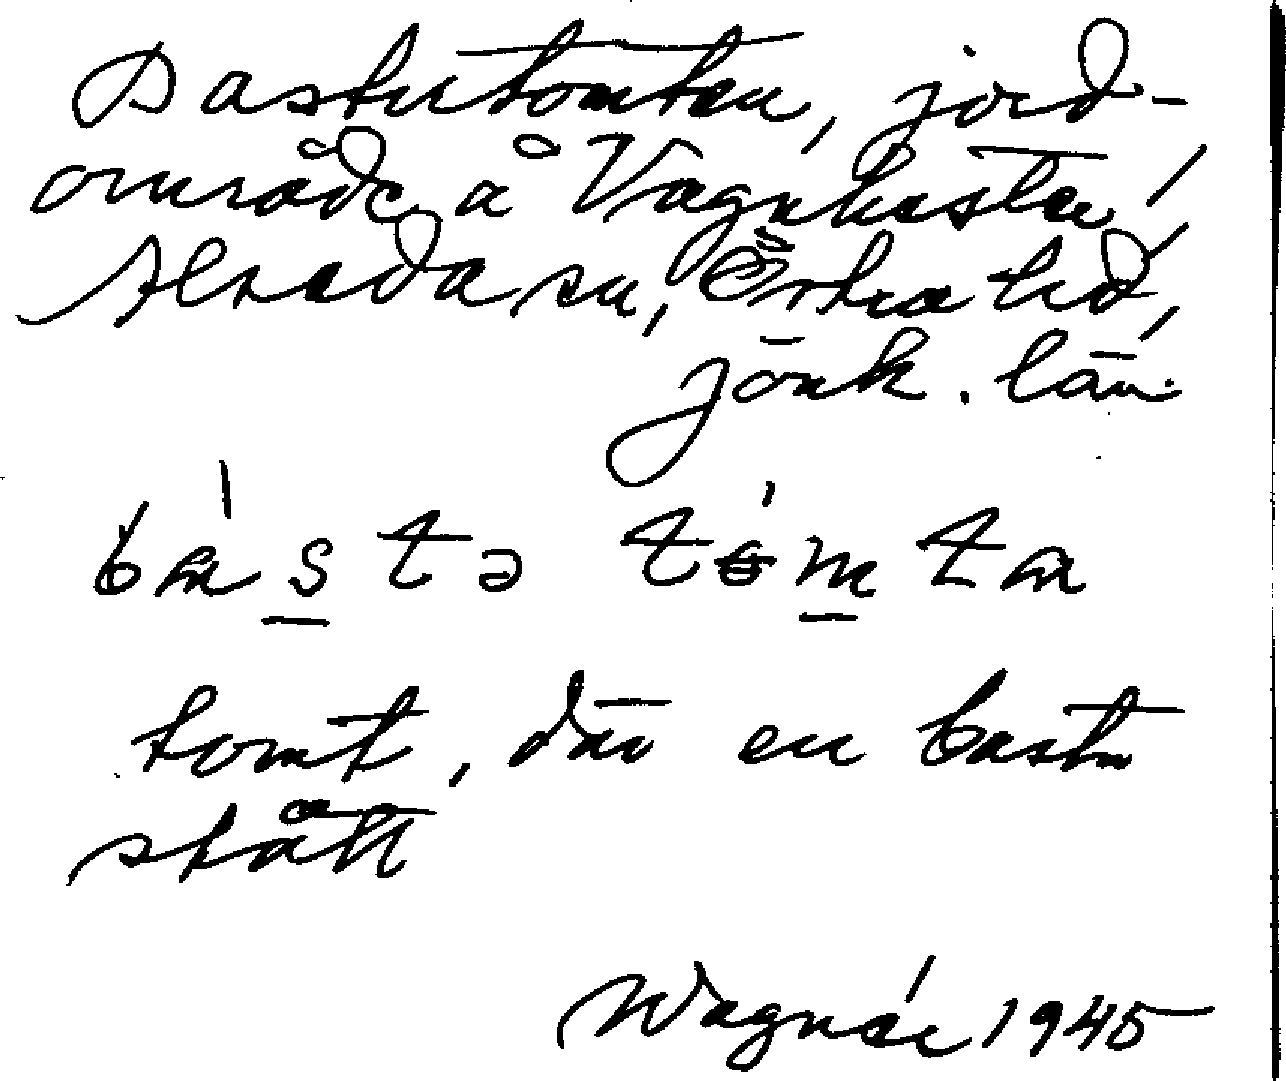 Bastutomten, jord-
område å Vagnhester,
Alseda sn, Östra hd,
Jönk. län.
bastə tomta
tomt, där en bastu
stått
Wagnér 1945